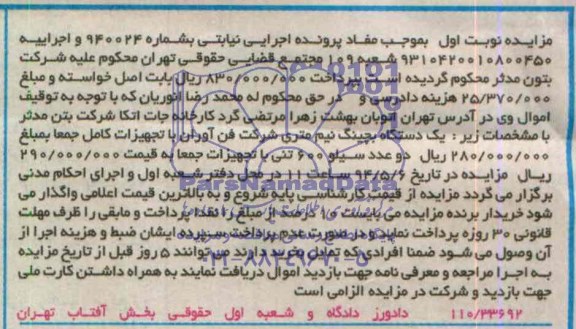 مزایده نوبت اول بموجب مفاد پرونده اجرایی نیابتی بشماره ۹۴۰۰۲۴ و اجراییه
۹۳۱۰۴۲۰۰۱۰۸۰۰۴۵۰ شعبه ۱۰۸ مجتمع قضایی حقوقی تهران محکوم علیه شرکت
بتون مدثر محکوم گردیده است به پرداخت ۸۳۰/۰۰۰/۰۰۰ ریال بابت اصل خواسته و مبلغ
۲۵/۳۷۰/۰۰۰ هزینه دادرسی و در حق محکوم له محمد رضا انوریان که با توجه به توقیف
اموال وی در آدرس تهران اتوبان بهشت زهرا مرتضی گرد کارخانه جات اتکا شرکت بتن مدثر
با مشخصات زیر : یک دستگاه بچینگ نیم متری شرکت فن آوران با تجهیزات کامل جمعا بمبلغ
۲۸۰/۰۰۰/۰۰۰ ریال دو عدد سیلو ۶۰۰ تنی با تجهیزات جمعا به قیمت ۲۹۰/۰۰۰/۰۰۰
ریال مزایده در تاریخ ۹۴/۵/۶ ساعت ۱۱ در محل دفتر شعبه اول و اجرای احکام مدنی
برگزار می گردد مزایده از قیمت کارشناسی پایه شروع و به بالاترین قیمت اعلامی واگذار می
شود خریدار برنده مزایده می بایست ۱۰ درصد از مبلغ را نقدا پرداخت و مابقی را ظرف مهلت
قانونی ۳۰ روزه پرداخت نماید و در صورت عدم پرداخت سپرده ایشان ضبط و هزینه اجرا از
آن وصول می شود ضمنا افرادی که تمایل بخرید دارند می توانند ۵ روز قبل از تاریخ مزایده
به اجرا مراجعه و معرفی نامه جهت بازدید اموال دریافت نمایند به همراه داشتن کارت ملی
جهت بازدید و شرکت در مزایده الزامی است
۱۱۰/۳۳۶۹۲ دادورز دادگاه و شعبه اول حقوقی بخش آفتاب تهران
ParsNamadData